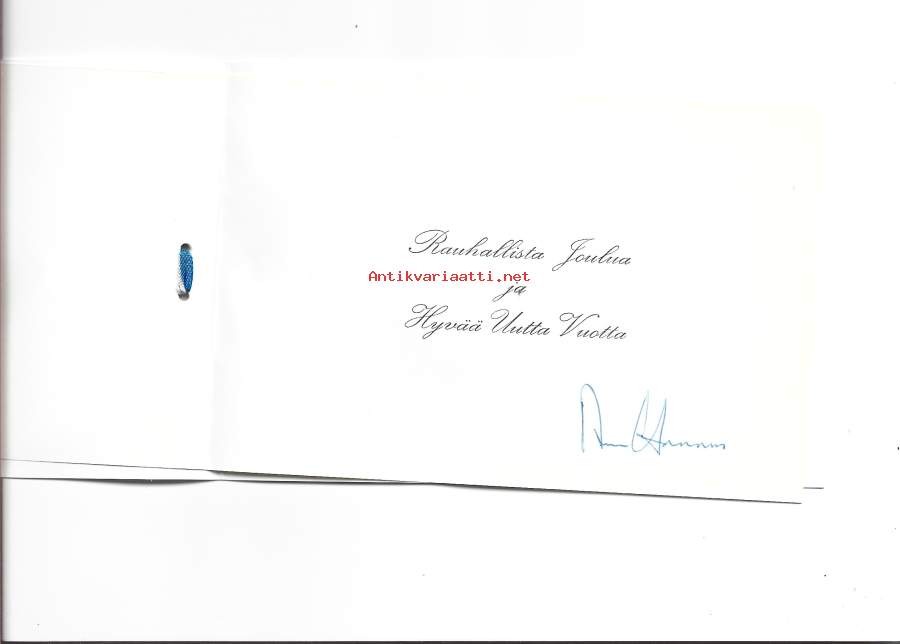 Rauhallista Joulua
Antikvariaatti.net
ja
Hyvää Uutta Vuotta